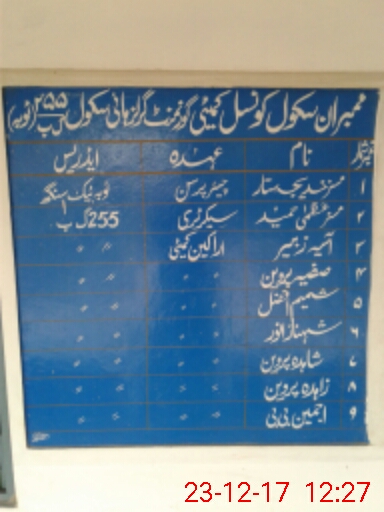 ممبران سکول کونسل کمیٹی گورنمنٹ گرلز ہائی سکول ۲۵۵ گ ب (ٹوبہ)
نمبر شمار نام عہدہ ایڈریس
۱ مسز خدیجہ ستار چیئرپرسن ٹوبہ ٹیک سنگھ
۲ مسز عظمیٰ حمید سیکرٹری 255 گ ب
۳ آسیہ زہیر اراکین کمیٹی 〃 〃
۴ صفیہ پروین 〃 〃 〃 〃
۵ شمیم افضل 〃 〃 〃 〃
۶ شہناز انور 〃 〃 〃 〃
۷ شاہدہ پروین 〃 〃 〃 〃
۸ زاہدہ پروین 〃 〃 〃 〃
۹ انجمین بی بی 〃 〃 〃 〃
23-12-17 12:27